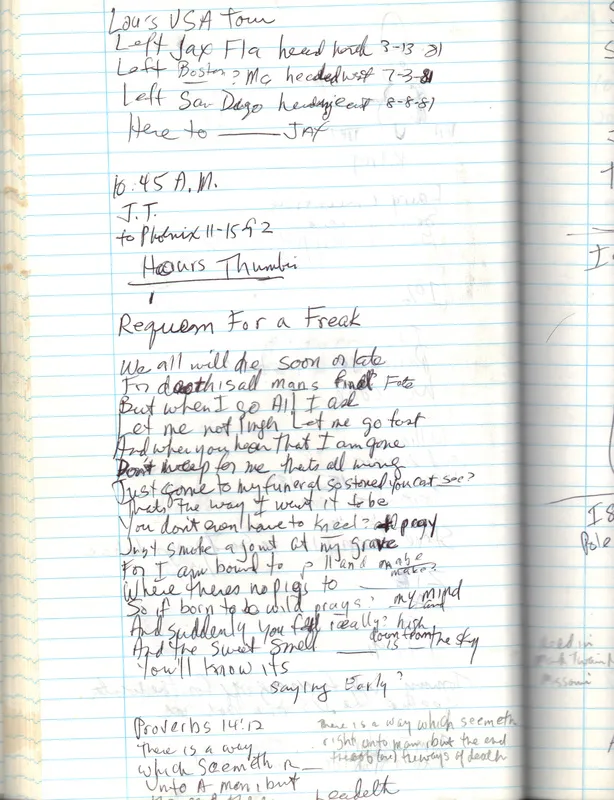 Lou's USA Tour
Left Jax Fla head north 3-13-81
Left Boston? Ma headed west 7-3-81
Left San Dego heading east 8-8-81
Here to ____ JAX
10:45 A.M.
J.T.
to Phoenix 11-15 & 2
Hours Thumbin
Requem For a Freak
We all will die, soon or late
For death is all mans final Fate
But when I go All I ask
Let me not linger Let me go fast
And when you hear that I am gone
Don't weep for me thats all wrong
Just come to my funeral so stoned you cat see?
Thats the way I want it to be
You don't even have to kneel? pray
Just smoke a joint at my grave
For I am bound to and maybe
make?
Where theres no pigs to ____
So if born to be wild prays? my mind
And suddenly you feel really? high
And the sweet smell ____ is down from the sky
You'll know its
saying Early?
Proverbs 14:12
There is a way
which seemeth r__
unto A man, but
Leadeth
There is a way which seemeth
right unto man, but the end
the ways of death
I
IS
Pole